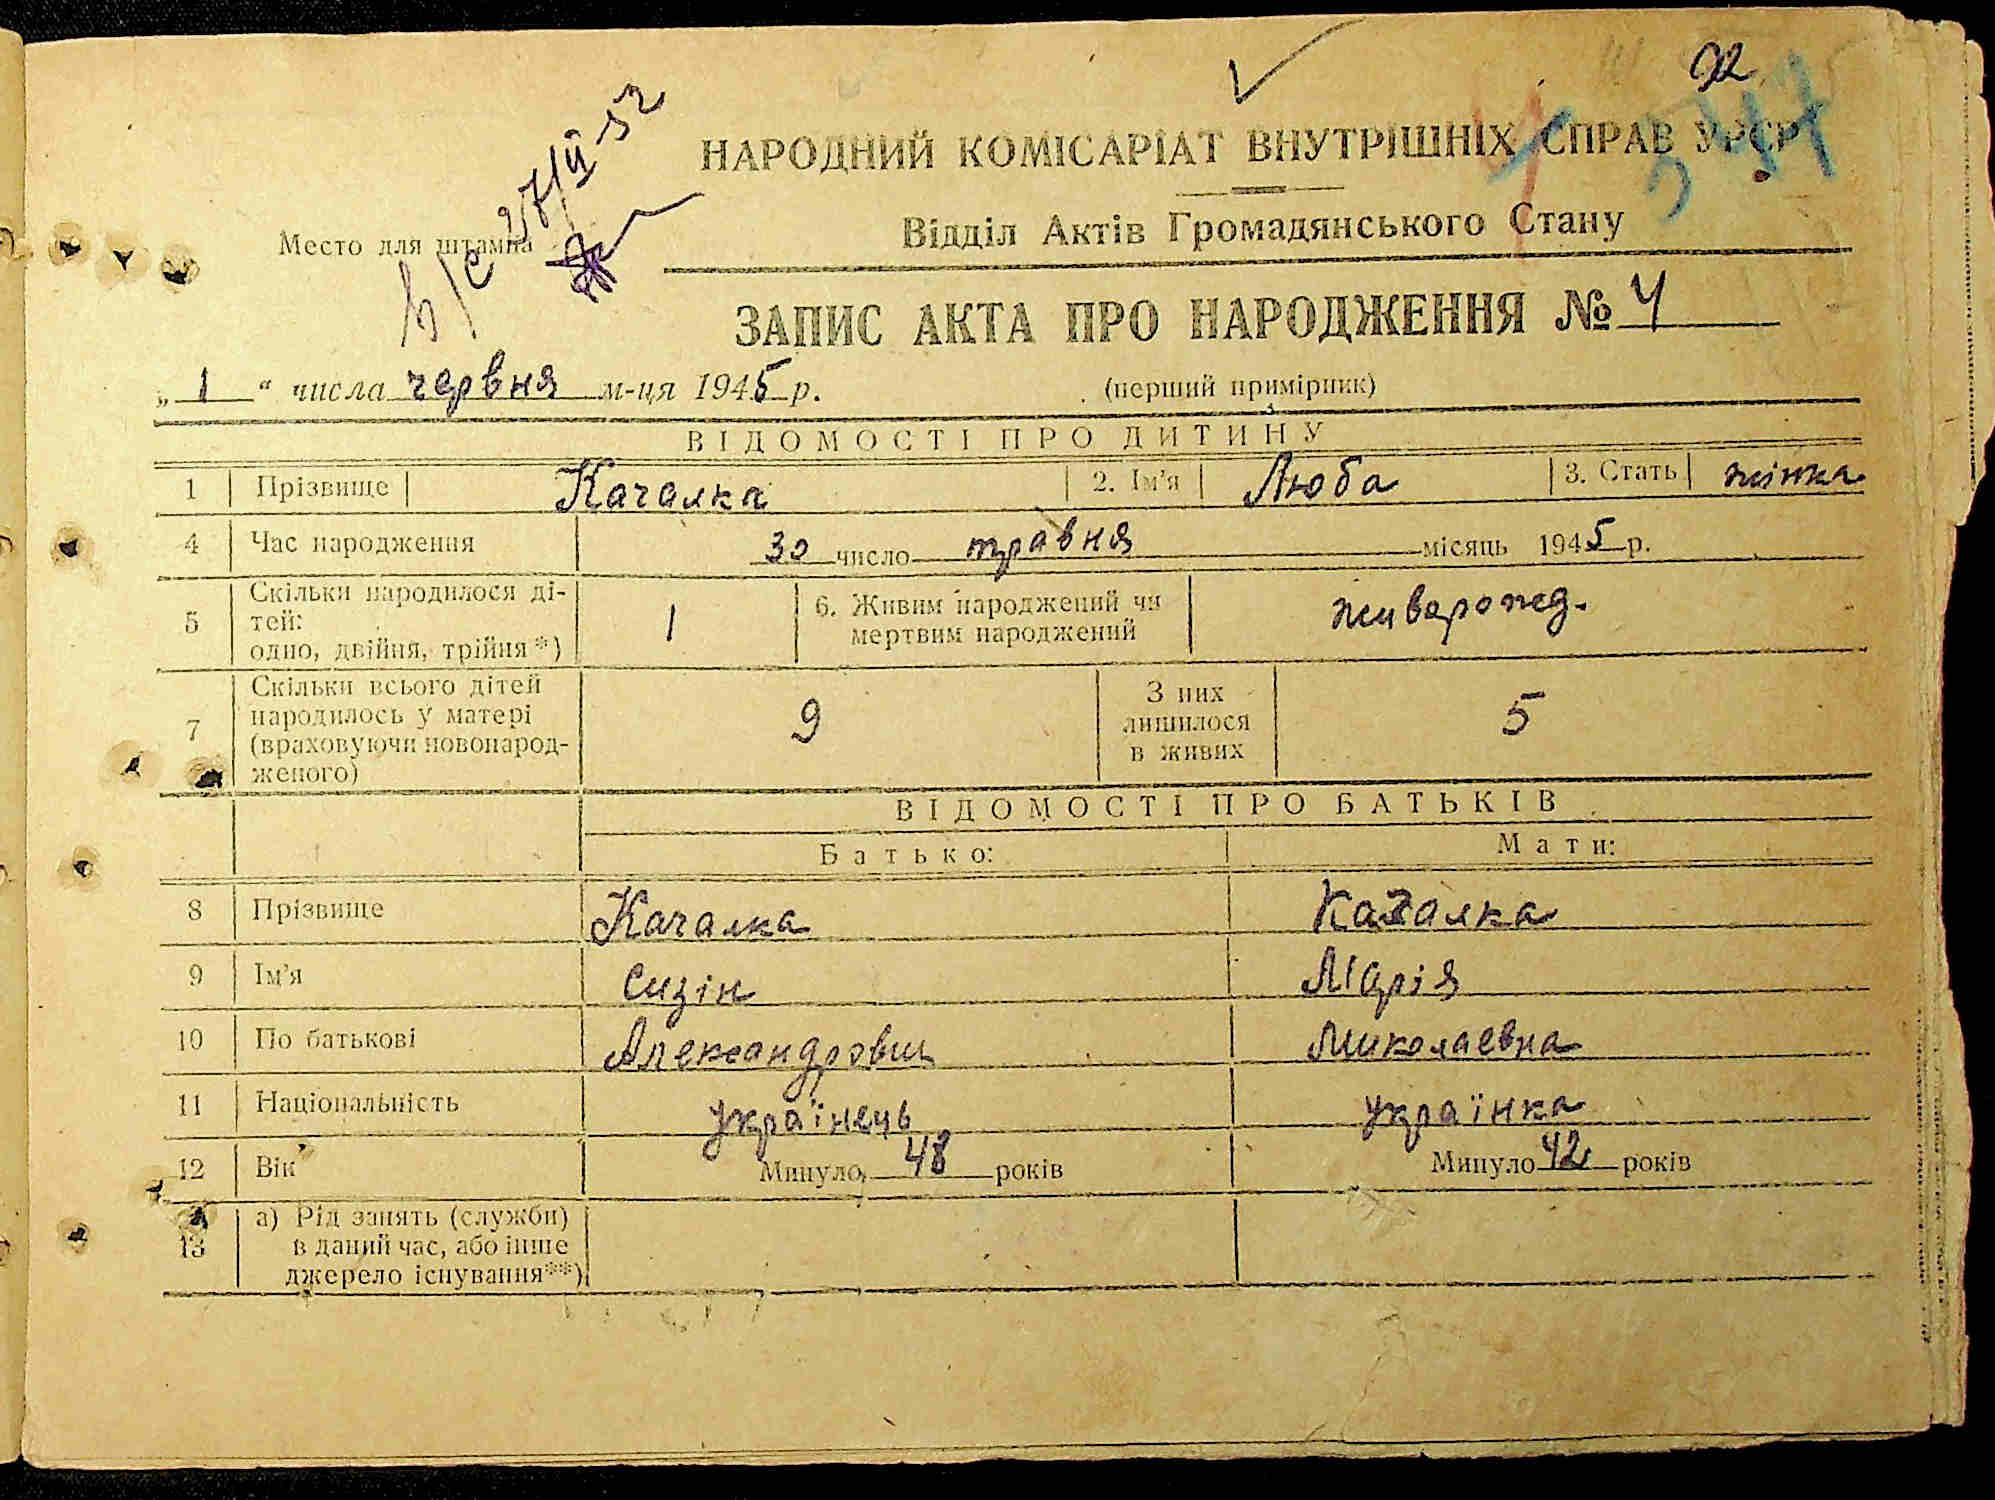 92
НАРОДНИЙ КОМІСАРІАТ ВНУТРІШНІХ СПРАВ УРСР
Відділ Актів Громадянського Стану
Место для штампа
ЗАПИС АКТА ПРО НАРОДЖЕННЯ № 4
„ 1 “ числа червня м-ця 1945 р. (перший примірник)
ВІДОМОСТІ ПРО ДИТИНУ
1 Прізвище Качалка 2. Ім'я Люба 3. Стать жінка
4 Час народження 30 число травня місяць 1945 р.
5 Скільки народилося ді-
тей:
одно, двійня, трійня*) 1
6. Живим народжений чи
мертвим народжений живорожд.
7 Скільки всього дітей
народилось у матері
(враховуючи новонарод-
женого) 9
З них
лишилося
в живих 5
ВІДОМОСТІ ПРО БАТЬКІВ
Батько: Мати:
8 Прізвище Качалка Качалка
9 Ім'я Сизін Марія
10 По батькові Александрович Миколаевна
11 Національність українець українка
12 Вік Минуло 48 років Минуло 42 років
13 а) Рід занять (служби)
в даний час, або інше
джерело існування**)